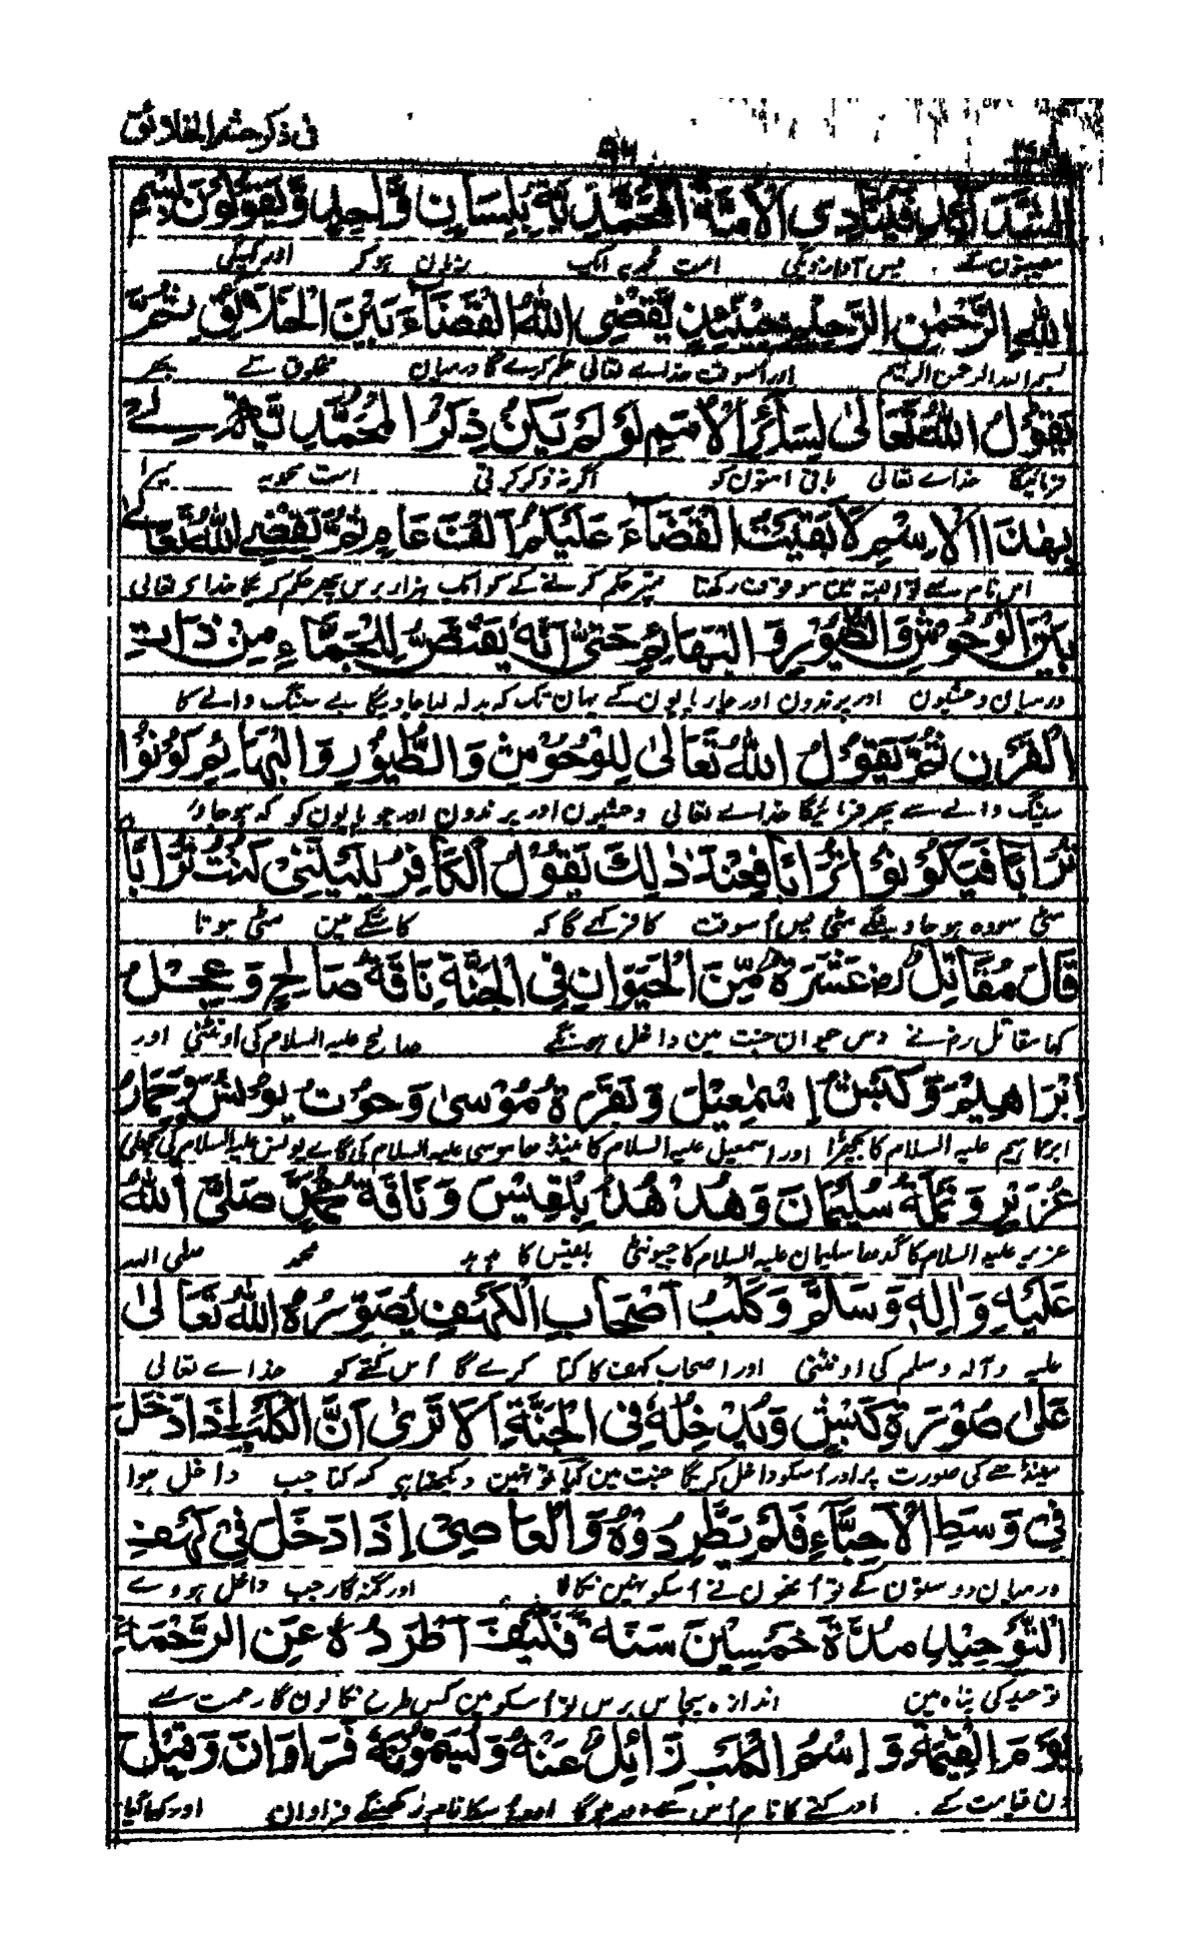 فی ذکر حشر الخلائق
الشَّدَآئِدِ فَیُنَادِی الْاُمَّةُ الْمُحَمَّدِیَّةُ بِلِسَانٍ وَّاحِدٍ وَّیَقُوْلُوْنَ بِسْمِ
مصیبتون سے پس آواز دیگی امت محمدیہ ایک زبان ہو کر اور کہیگی
اللّٰهِ الرَّحْمٰنِ الرَّحِیْمِ حِیْنَئِذٍ یَّقْضِی اللّٰهُ الْقَضَآءَ بَیْنَ الْخَلَآئِقِ ثُمَّ
بسم اللہ الرحمن الرحیم اور اسوقت خداے تعالی حکم کرے گا درمیان مخلوق کے پھر
یَقُوْلُ اللّٰهُ تَعَالٰی لِسَآئِرِ الْاُمَمِ لَوْ لَمْ یَکُنْ ذِکْرُ الْمُحَمَّدِیَّةِ
فرمائیگا خداے تعالی باقی امتون کو اگر نہ ذکر کرتی امت محمدیہ میرا
بِهٰذَا الْاِسْمِ لَاَبْقَیْتُ الْقَضَآءَ عَلَیْکُمْ اَلْفَ عَامٍ ثُمَّ یَقْضِی اللّٰهُ تَعَالٰی
اس نام سے تو البتہ مین موقوف رکھتا تمپر حکم کرنے کو ایک ہزار برس پھر حکم کریگا خداے تعالی
بَیْنَ الْوُحُوْشِ وَالطُّیُوْرِ وَ الْبَهَآئِمِ حَتّٰی اَنَّهٗ یَقْتَصُّ لِلْجَمَّآءِ مِنْ ذَاتِ
درمیان وحشیون اور پرندون اور چارپایون کے یہان تک کہ بدلہ لیا جاویگا بے سینگ والے کا
الْقَرْنِ ثُمَّ یَقُوْلُ اللّٰهُ تَعَالٰی لِلْوُحُوْشِ وَالطُّیُوْرِ وَالْبَهَآئِمِ کُوْنُوْا
سینگ والے سے پھر فرمائیگا خداے تعالی وحشیون اور پرندون اور چوپایون کو کہ ہو جاؤ
تُرَابًا فَیَکُوْنُوْا تُرَابًا فَعِنْدَ ذٰلِکَ یَقُوْلُ الْکَافِرُ یٰلَیْتَنِیْ کُنْتُ تُرَابًا
مٹی سو وہ ہو جاوینگے مٹی پس اسوقت کافر کہے گا کہ کاشکے مین مٹی ہوتا
قَالَ مُقَاتِلٌ رض عَشَرَةٌ مِّنَ الْحَیَوَانِ فِی الْجَنَّةِ نَاقَةُ صَالِحٍ وَعِجْلُ
کہا مقاتل رض نے دس حیوان جنت مین داخل ہونگے صالح علیہ السلام کی اونٹنی اور
اِبْرَاهِیْمَ وَکَبْشُ اِسْمٰعِیْلَ وَبَقَرَةُ مُوْسٰی وَحُوْتُ یُوْنُسَ وَحِمَارُ
ابراہیم علیہ السلام کا بچھڑا اور اسمعیل علیہ السلام کا مینڈھا موسی علیہ السلام کی گاے یونس علیہ السلام کی مچھلی
عُزَیْرٍ وَنَمْلَةُ سُلَیْمَانَ وَهُدْهُدُ بِلْقِیْسَ وَنَاقَةُ مُحَمَّدٍ صَلَّی اللّٰهُ
عزیر علیہ السلام کا گدھا سلیمان علیہ السلام کا چیونٹی بلقیس کا ہدہد محمد صلی اللہ
عَلَیْهِ وَاٰلِهٖ وَسَلَّمَ وَکَلْبُ اَصْحَابِ الْکَهْفِ یُصَوِّرُهُ اللّٰهُ تَعَالٰی
علیہ وآلہ وسلم کی اونٹنی اور اصحاب کہف کا کتا کرے گا اس کتے کو خداے تعالی
عَلٰی صُوْرَةِ کَبْشٍ وَیُدْخِلُهٗ فِی الْجَنَّةِ اَلَا تَرٰی اَنَّ الْکَلْبَ اِذَا دَخَلَ
مینڈھے کی صورت پر اور اسکو داخل کریگا جنت مین کیا تو نہین دیکھتا ہے کہ کتا جب داخل ہوا
فِیْ وَسَطِ الْاَحِبَّآءِ فَلَمْ یَطْرُدُوْهُ وَالْعَاصِیْ اِذَا دَخَلَ فِیْ کَهْفِ
درمیان دوستون کے تو انھون نے اسکو نہین نکالا اور گنہگار جب داخل ہووے
التَّوْحِیْدِ مُدَّةَ خَمْسِیْنَ سَنَةً فَکَیْفَ اَطْرُدُهٗ عَنِ الرَّحْمَةِ
توحید کی پناہ مین اندازہ پچاس برس تو اسکو مین کس طرح نکالون گا رحمت سے
یَوْمَ الْقِیٰمَةِ وَاِسْمُ الْکَلْبِ زَآئِلٌ عَنْهُ وَیُسَمُّوْنَهٗ فَرَاوَانَ وَقِیْلَ
دن قیامت کے اور کتے کا نام اس سے دور ہوگا اور اسکا نام رکھینگے فراوان اور کہا گیا